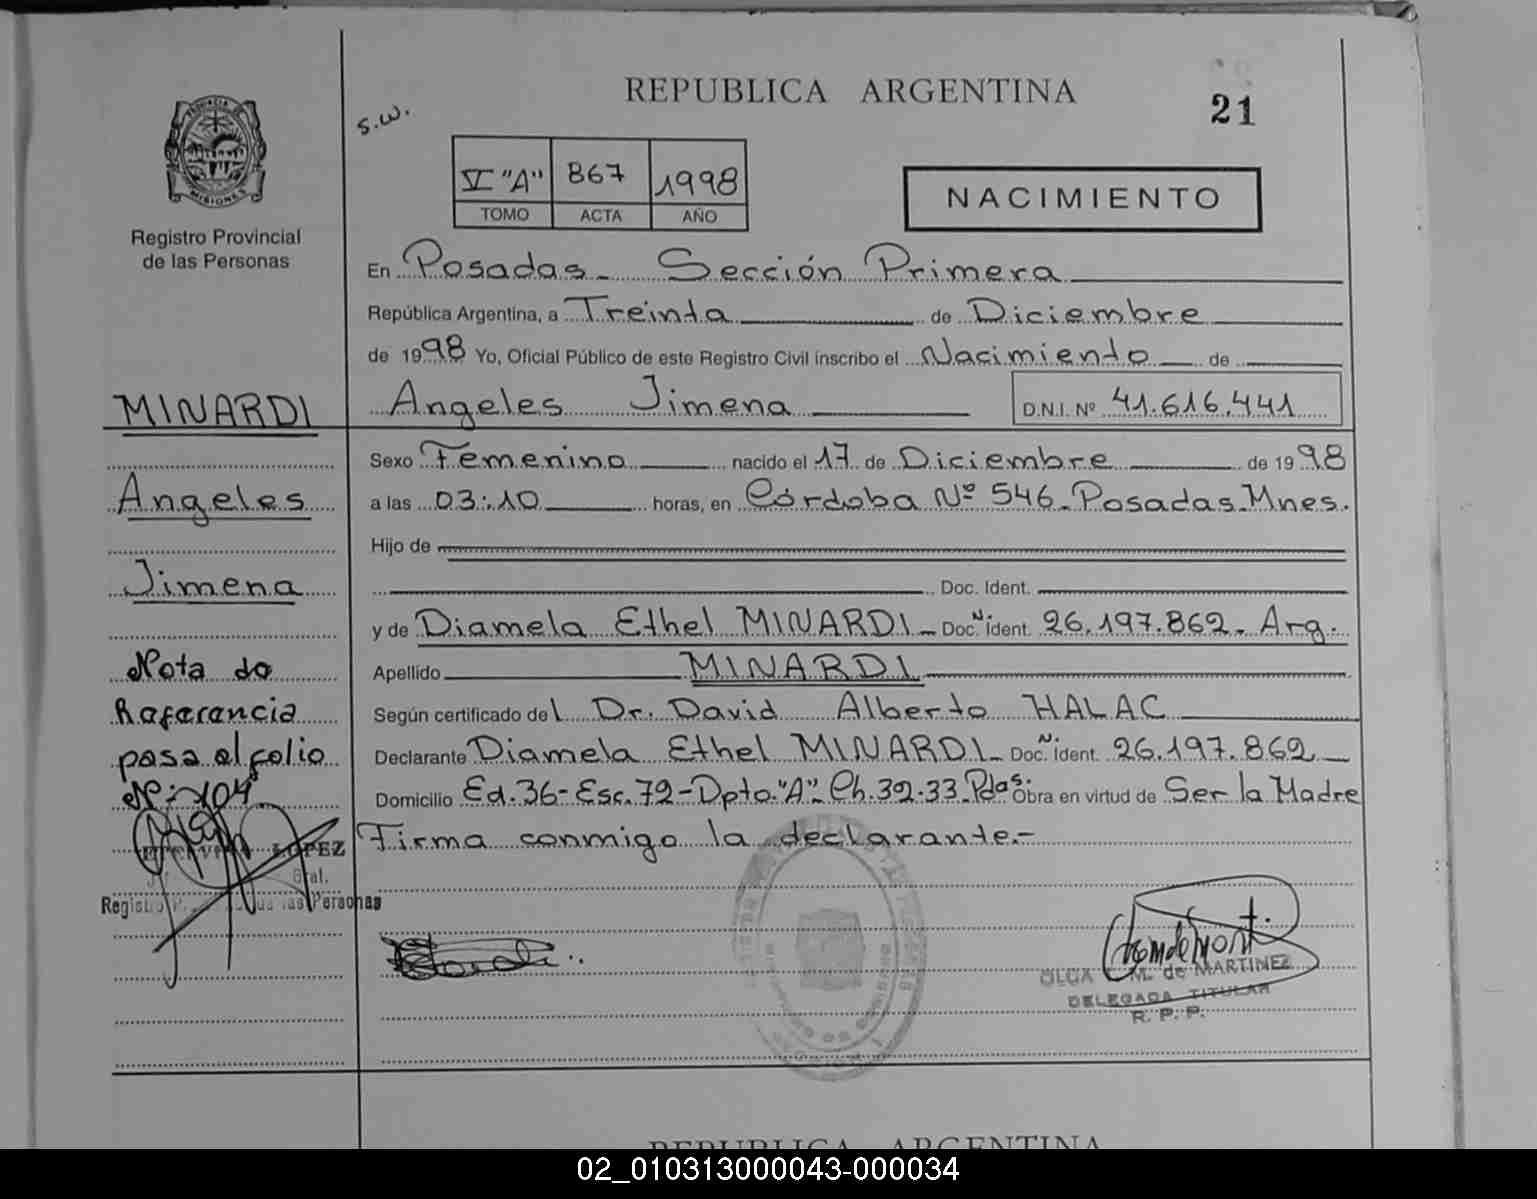 REPUBLICA ARGENTINA
21
S.W.
PROVINCIA DE MISIONES
Registro Provincial
de las Personas
V "A" 867 1998
TOMO ACTA AÑO
NACIMIENTO
En Posadas - Sección Primera
República Argentina, a Treinta de Diciembre
de 1998 Yo, Oficial Público de este Registro Civil inscribo el Nacimiento de
Angeles Jimena D.N.I. Nº 41.616.441
Sexo Femenino nacido el 17 de Diciembre de 1998
a las 03:10 horas, en Córdoba Nº 546 - Posadas - Mnes.
Hijo de
Doc. Ident.
y de Diamela Ethel MINARDI - Doc. N. Ident. 26.197.862 - Arg.
Apellido MINARDI
Según certificado del Dr. David Alberto HALAC
Declarante Diamela Ethel MINARDI - Doc. N. Ident. 26.197.862
Domicilio Ed. 36 - Esc. 72 - Dpto. "A" - Ch. 32-33 - Pdas. Obra en virtud de Ser la Madre
Firma conmigo la declarante.-
MINARDI
Angeles
Jimena
Nota de
Referencia
pasa al folio
Nº 104
LOPEZ
Gral.
Personas
OLGA M. de MARTINEZ
DELEGADA TITULAR
R. P. P.
REPUBLICA ARGENTINA
02_010313000043-000034